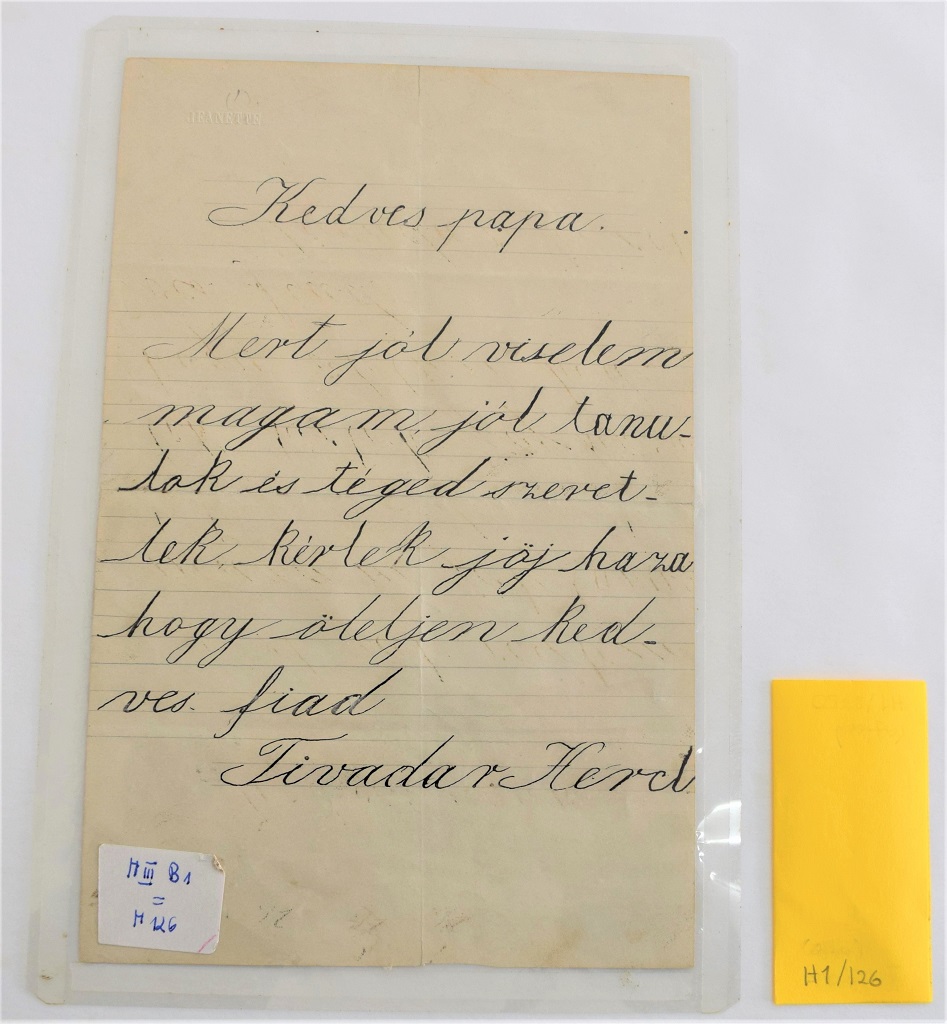 JEANETTE
Kedves papa.
Mert jól viselem
magam jól tanu-
lok és téged szeret-
lek kérlek jöj haza
hogy öleljen ked-
ves fiad
Tivadar Hercl
H III B1
=
H 126
H1/126